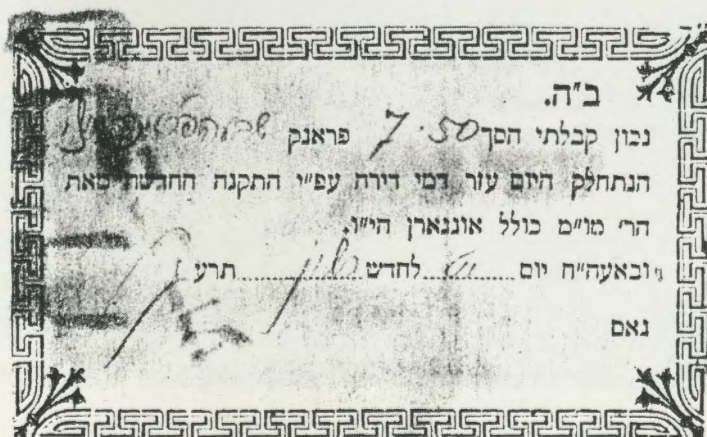 ב"ה.
נכון קבלתי הסך 7.50 פראנק
הנתחלק היום עזר דמי דירה עפ"י התקנה החדשה מאת
הר' מו"מ כולל אונגארן הי"ו.
ובאעה"ח יום לחדש תרע
נאם